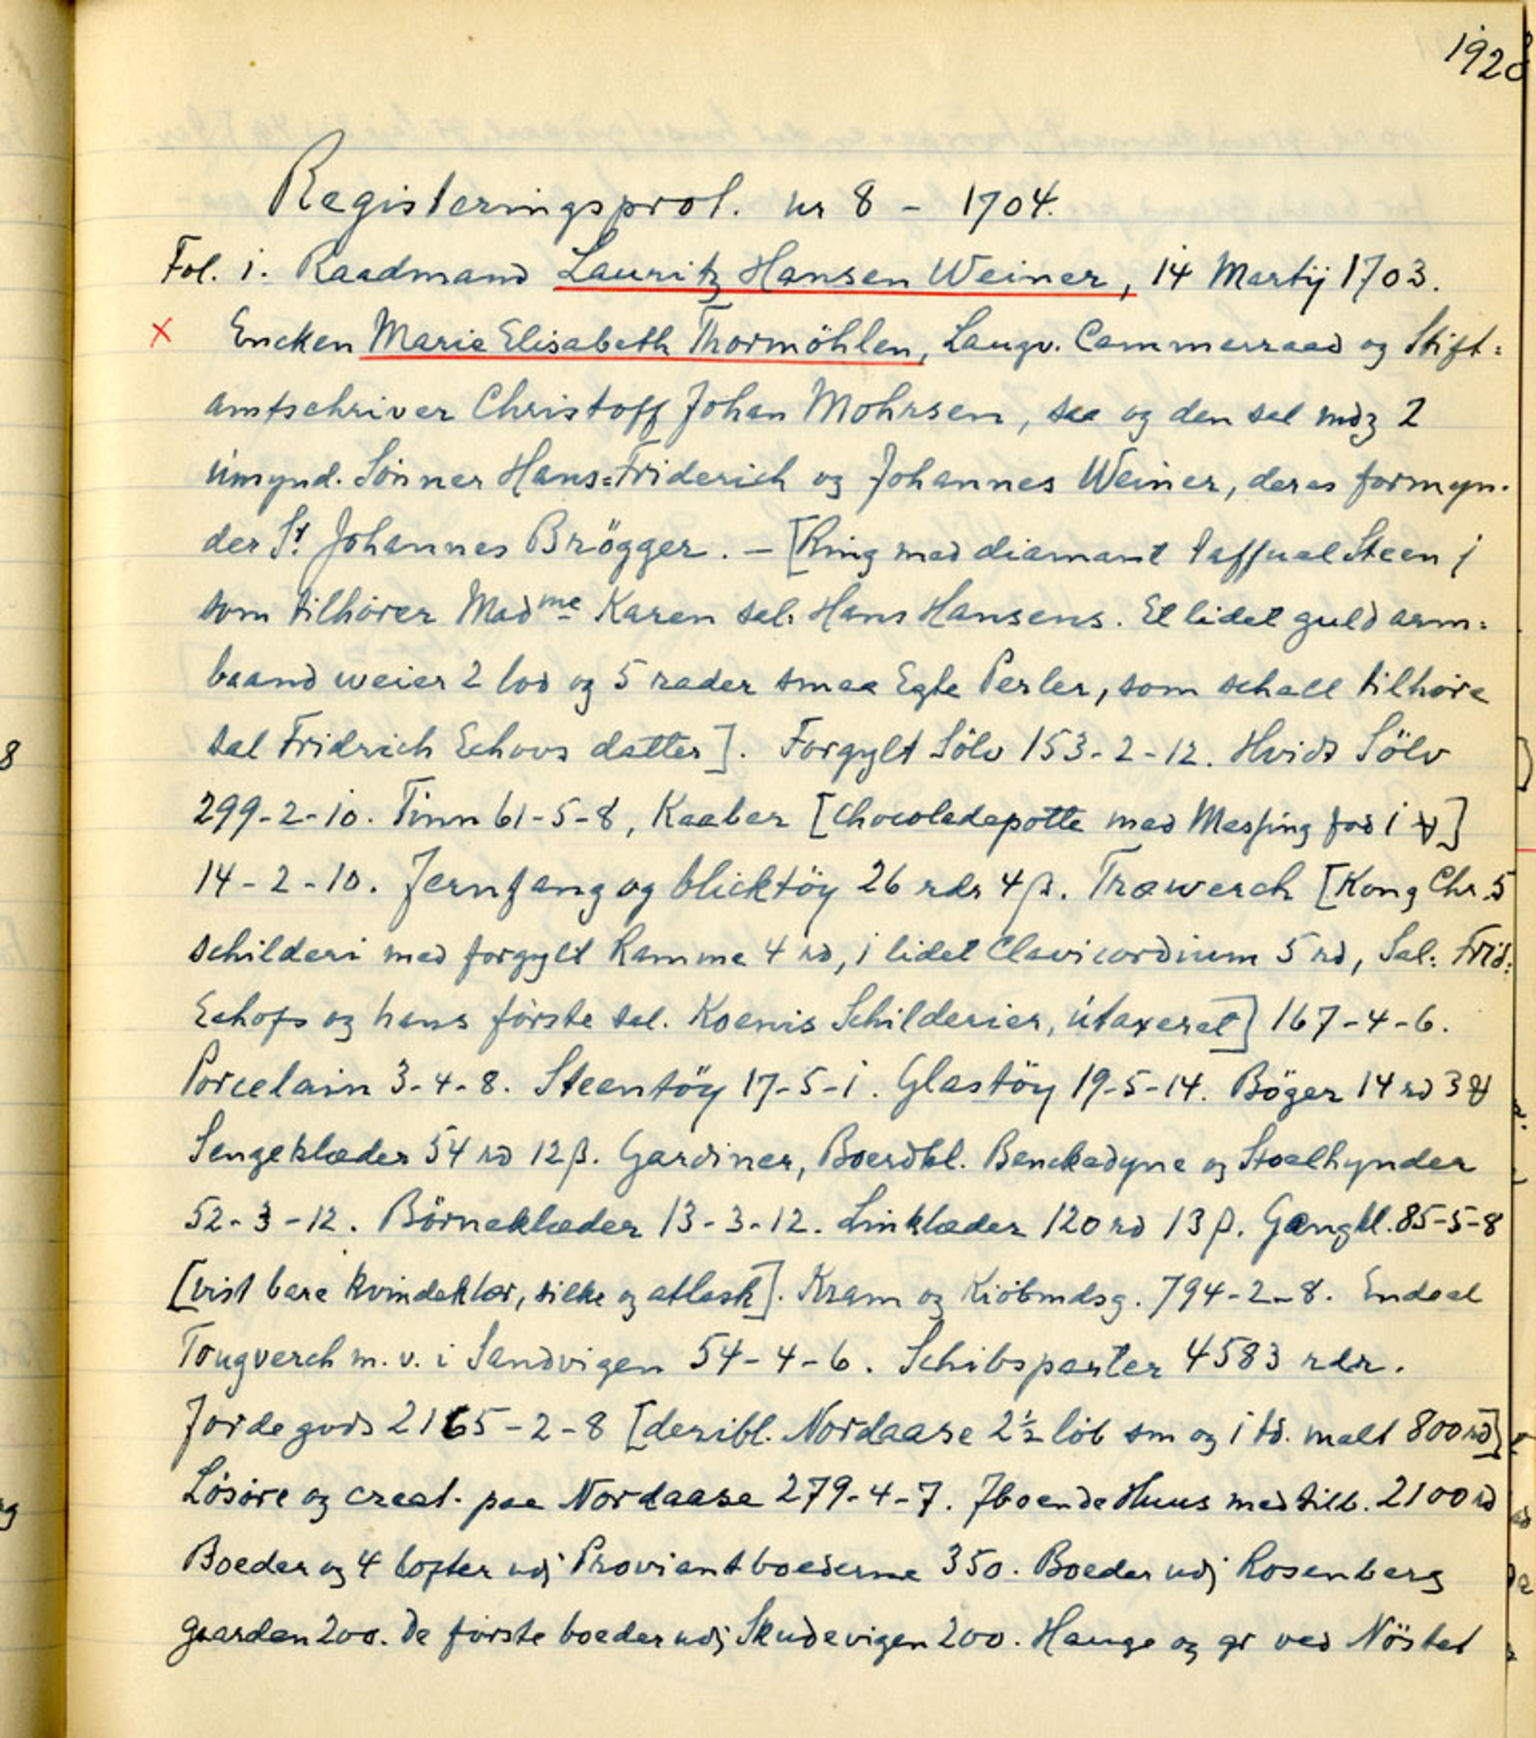 1928
Registeringsprot. nr 8 - 1704.
Fol. 1. Raadmand Lauritz Hansen Weiner, 14 Martij 1703.
x Encken Marie Elisabeth Thormöhlen, Laugv. Cammerraad og Stift=
amtschriver Christoff Johan Mohrsen, saa og den sal mdz 2
umynd. Sønner Hans=Friderich og Johannes Weiner, deres formyn-
der Sr. Johannes Brögger. - [Ring med diamant taffuel Steen j
som tilhører Madme Karen sal. Hans Hansens. Et lidet guld arm=
baand weier 2 lod og 5 rader smaa Egte Perler, som schall tilhøre
sal Fridrich Echovs datter]. Forgylt Sölv 153-2-12. Hvidt Sölv
299-2-10. Tinn 61-5-8, Kaaber [Chocoladepotte med Messing fod 1 ]
14-2-10. Jernfang og blicktöy 26 rdr 4 β. Træwerch [Kong Chr. 5
schilderi med forgylt Ramme 4 rd, 1 lidet Clavicordium 5 rd, Sal: Frid:
Echofs og hans første sal. Koenis Schilderier, utaxeret] 167-4-6.
Porcelain 3-4-8. Steentöy 17-5-1. Glastöy 19-5-14. Böger 14 rd 3
Sengeklæder 54 rd 12 β. Gardiner, Boerdkl. Benckedyne og Stoelhynder
52-3-12. Börneklæder 13-3-12. Linklæder 120 rd 13 β. Gangkl. 85-5-8
[vist bare kvindeklær, silke og atlask]. Kram og Kiöbmdsg. 794-2-8. Endeel
Tougverch m.v. i Sandvigen 54-4-6. Schibsparter 4583 rdr.
Jordegods 2165-2-8 [deribl. Nordaase 2½ löb sm og 1 td. malt 800 rd]
Løsøre og creat. paa Nordaase 279-4-7. Jboende Huus med tilb. 2100 rd
Boeder og 4 lofter udj Proviantboederne 350. Boeder udj Rosenberg
gaarden 200. De første boeder udj Skudevigen 200. Hauge og gr ved Nöstet